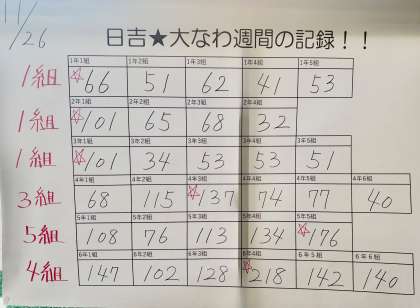 11/26
日吉★大なわ週間の記録！！
1年1組 1年2組 1年3組 1年4組 1年5組
1組 ☆66 51 62 41 53
2年1組 2年2組 2年3組 2年4組
1組 ☆101 65 68 32
3年1組 3年2組 3年3組 3年4組 3年5組
1組 ☆101 34 53 53 51
4年1組 4年2組 4年3組 4年4組 4年5組 4年6組
3組 68 115 ☆137 74 77 40
5年1組 5年2組 5年3組 5年4組 5年5組
5組 108 76 113 134 ☆176
6年1組 6年2組 6年3組 6年4組 6年5組 6年6組
4組 147 102 128 ☆218 142 140